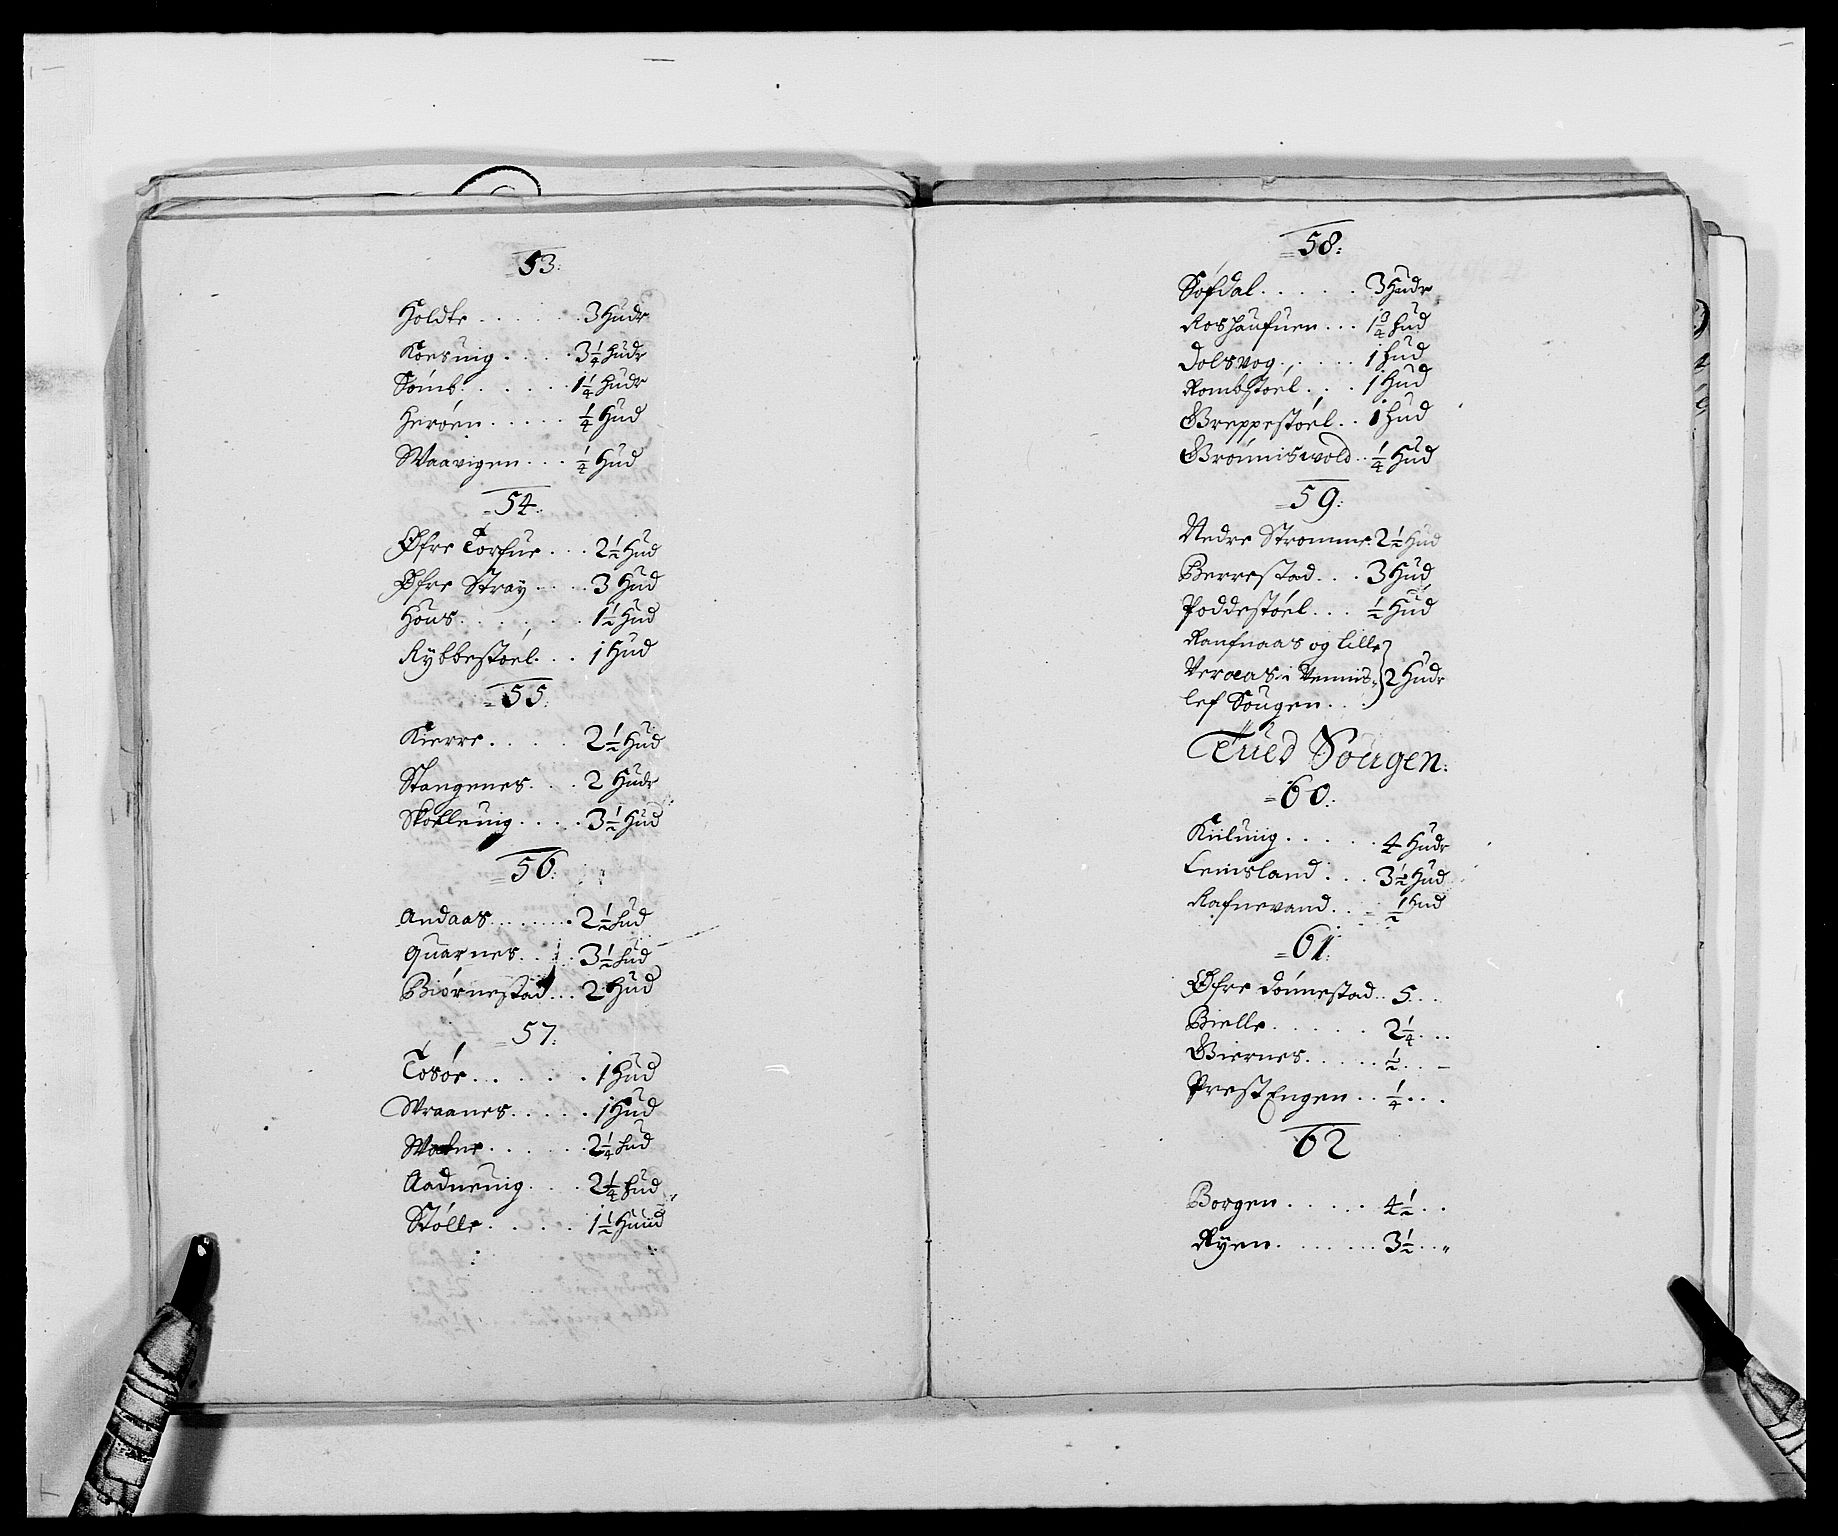 53:
Holdte . . . . . . 3 Hudr
Koesuiig . . . . . 3¼ Hudr
Sömb . . . . . . 1¼ Hudr
Herøen . . . . . ¼ Hud
Waavigen . . . ¼ Hud
54:
Øfre Torfue . . . 2½ Hud
Øfre Stray . . . . 3 Hud
Höus . . . . . . 1½ Hud
Rÿbbestøel . . . 1 Hud
55:
Kierre . . . . . 2½ Hud
Stangenes . . . 2 Hudr
Skolleuiig . . . . 3½ Hud
56:
Andaas . . . . . . . 2½ Hud
Quarnes . . . . . 3½ Hud
Biörnestad . . . 2 Hud
57:
Tosøe . . . . . . . 1 Hud
Wraanes . . . . . 1 Hud
. . . . . . 2¼ Hud
Aadneuiig . . . . 2¼ Hud
Stølle . . . . . 1½ Huud
58:
Söfdal . . . . . 3 Hudr
Roshaufuen . . . 1¾ Hud
Dolsvog . . . . . . 1 Hud
Rombstøel . . . 1 Hud
Greppestøel . . 1 Hud
Grönniswold . . ¼ Hud
59:
Nedre Strömme . 2½ Hud
Berrestad . . . 3 Hud
Poddestøel . . . ½ Hud
Raufnaas og lille
Veraas i Vennis= } 2 Hudr
lef Sougen . . .
Tued Sougen:
60:
Kiiluiig . . . . . 4 Hudr
Leuisland . . . . 3½ Hud
Rafnevand . . . ½ Hud
61:
Øfre Dönnestad . . 5 . . .
Bielle . . . . . . 2¼ . . .
Giernes . . . . . ½ . . .
Prest Engen . . ¼ . . .
62
Borgen . . . . . 4½ . .
Rÿen . . . . . . . 3½ . . "